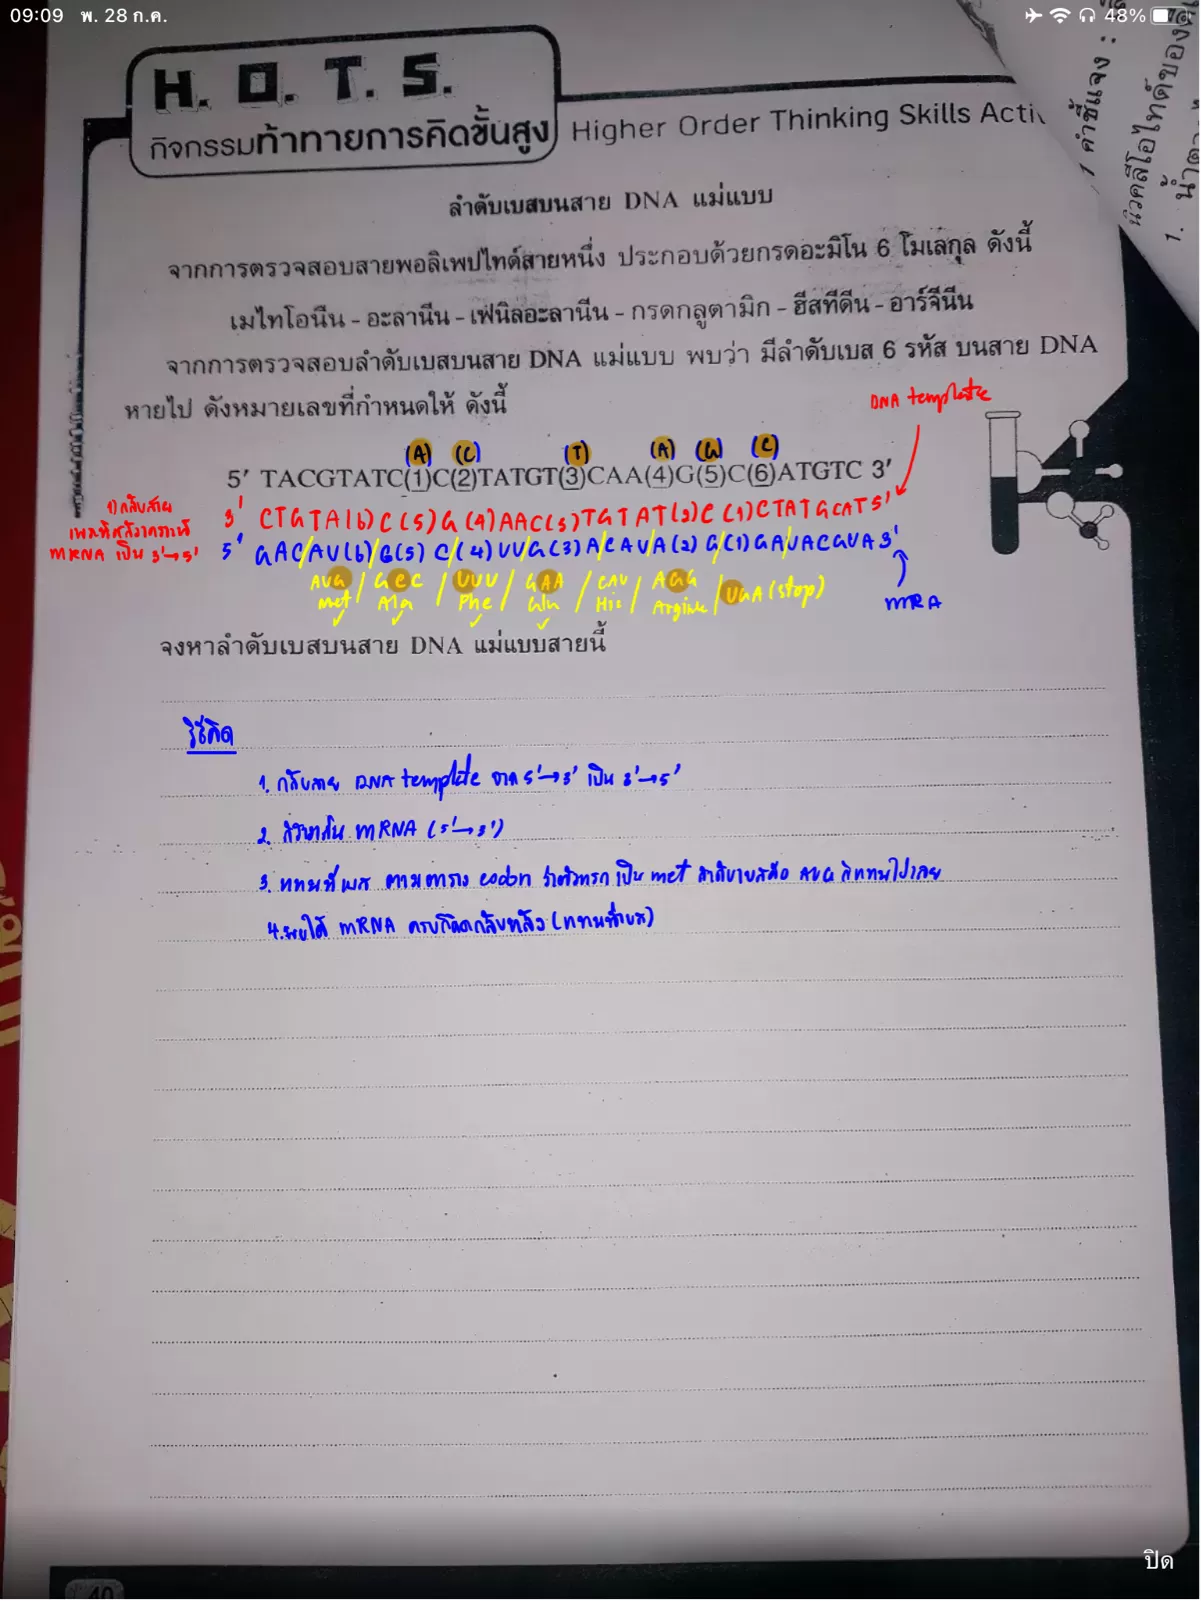 09:09 พ. 28 ก.ค.
48%
H. O. T. S.
กิจกรรมท้าทายการคิดขั้นสูง
Higher Order Thinking Skills Acti
1 คำชี้แจง :
นิวคลีโอไทด์ของ
1. น้ำตา
ลำดับเบสบนสาย DNA แม่แบบ
จากการตรวจสอบสายพอลิเพปไทด์สายหนึ่ง ประกอบด้วยกรดอะมิโน 6 โมเลกุล ดังนี้
เมไทโอนีน - อะลานีน - เฟนิลอะลานีน - กรดกลูตามิก - ฮีสทีดีน - อาร์จีนีน
จากการตรวจสอบลำดับเบสบนสาย DNA แม่แบบ พบว่า มีลำดับเบส 6 รหัส บนสาย DNA
หายไป ดังหมายเลขที่กำหนดให้ ดังนี้
DNA template
(A) (C) (T) (A) (G) (C)
5′ TACGTATC(1)C(2)TATGT(3)CAA(4)G(5)C(6)ATGTC 3′
1) กลับสาย
mRNA เป็น 3'→5'
3' CTGTA(6)C(5)G(4)AAC(3)TGTAT(2)C(1)CTATGCAT5'
5' GAC/AU(6)/G(5)C/(4)UU/G(3)A/CAU/A(2)G/(1)GA/UACGUA3'
AUG / GCC / UUU / GAA / CAU / AGG / UGA (stop)
Met Ala Phe Glu His Arginine
mRA
จงหาลำดับเบสบนสาย DNA แม่แบบสายนี้
วิธีคิด
1. กลับสาย DNA template จาก 5'→3' เป็น 3'→5'
2. mRNA (5'→3')
3. แทนที่เบส ตามตาราง codon ว่าตัวแรกเป็น met ลำดับเบสคือ AUG ก็แทนไปเลย
4. พอได้ mRNA ครบก็คิดกลับหลัง (แทนที่เบส)
ปิด
40